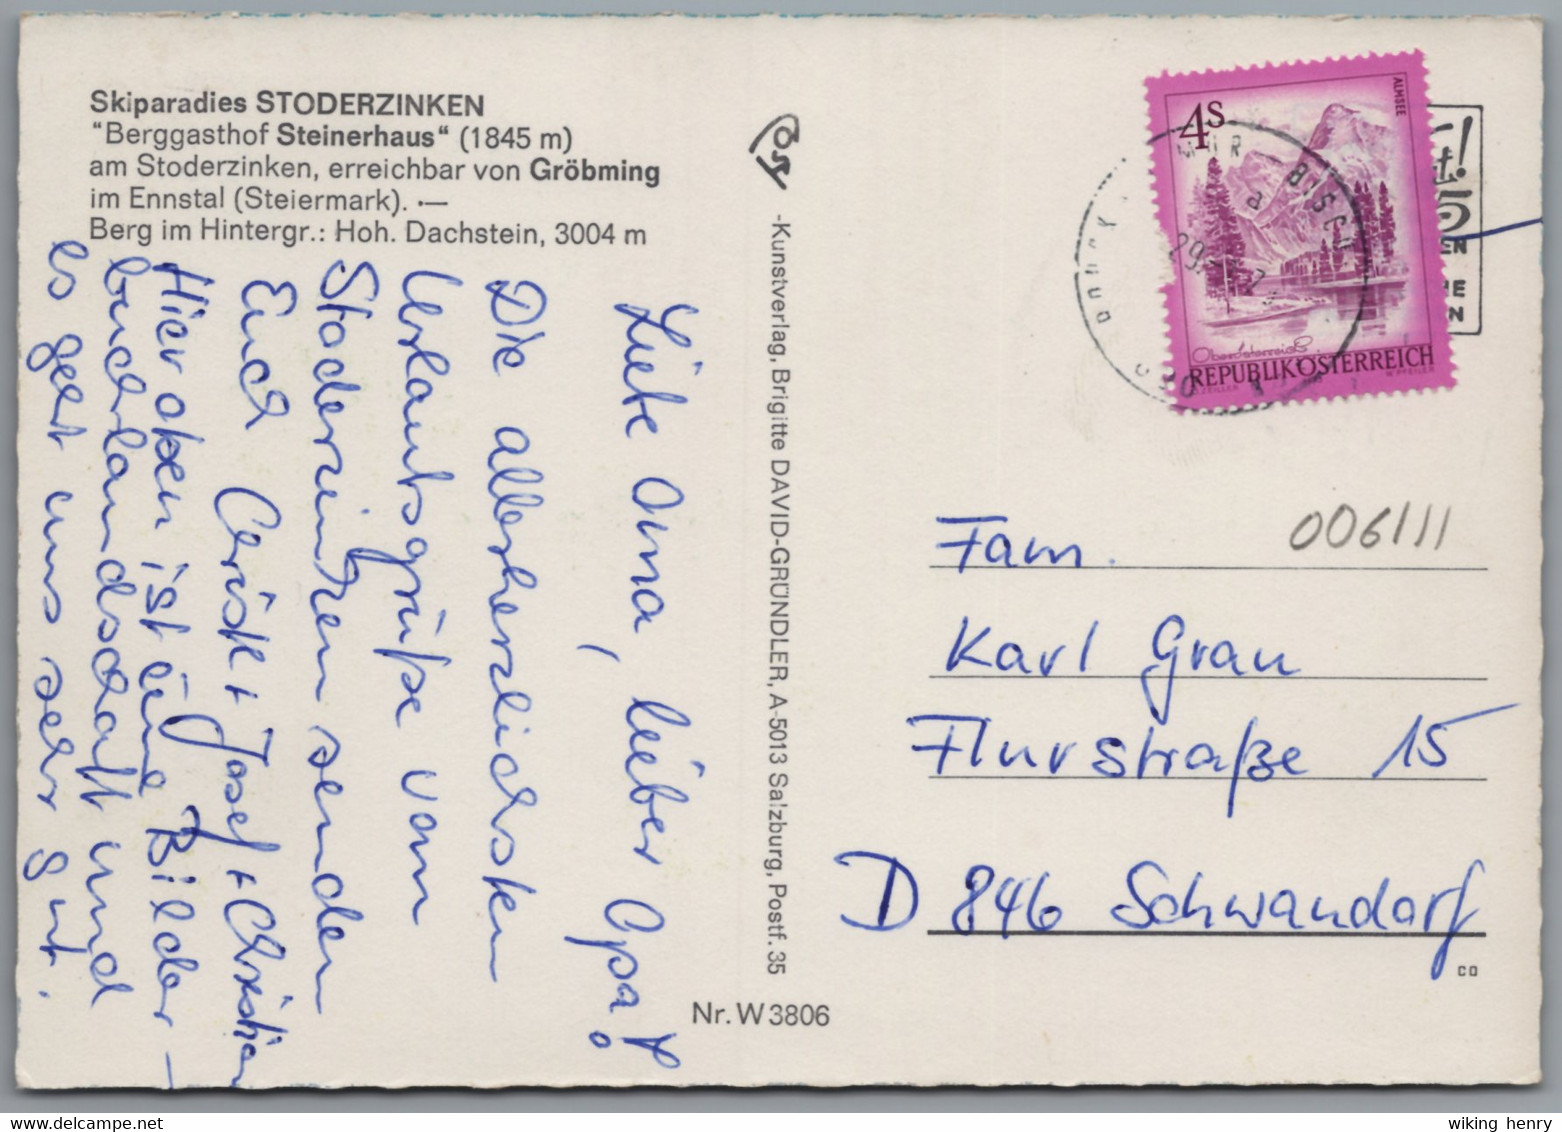 Skiparadies STODERZINKEN
"Berggasthof Steinerhaus" (1845 m)
am Stoderzinken, erreichbar von Gröbming
im Ennstal (Steiermark). ·—
Berg im Hintergr.: Hoh. Dachstein, 3004 m
Liebe Oma, lieber Opa!
Die allerherzlichsten
Urlaubsgrüße vom
Stoderzinken senden
Euch Christl + Josef + Christian
Hier oben ist eine Bilder-
buchlandschaft und
es geht uns sehr gut.
-Kunstverlag, Brigitte DAVID-GRÜNDLER, A-5013 Salzburg, Postf. 35
Nr. W 3806
4S
ALMSEE
Oberösterreich
REPUBLIK ÖSTERREICH
BISCH
a
29.
EN
HE
EN
006/11
Fam.
Karl Grau
Flurstraße 15
D 846 Schwandorf
CO
wiking henry